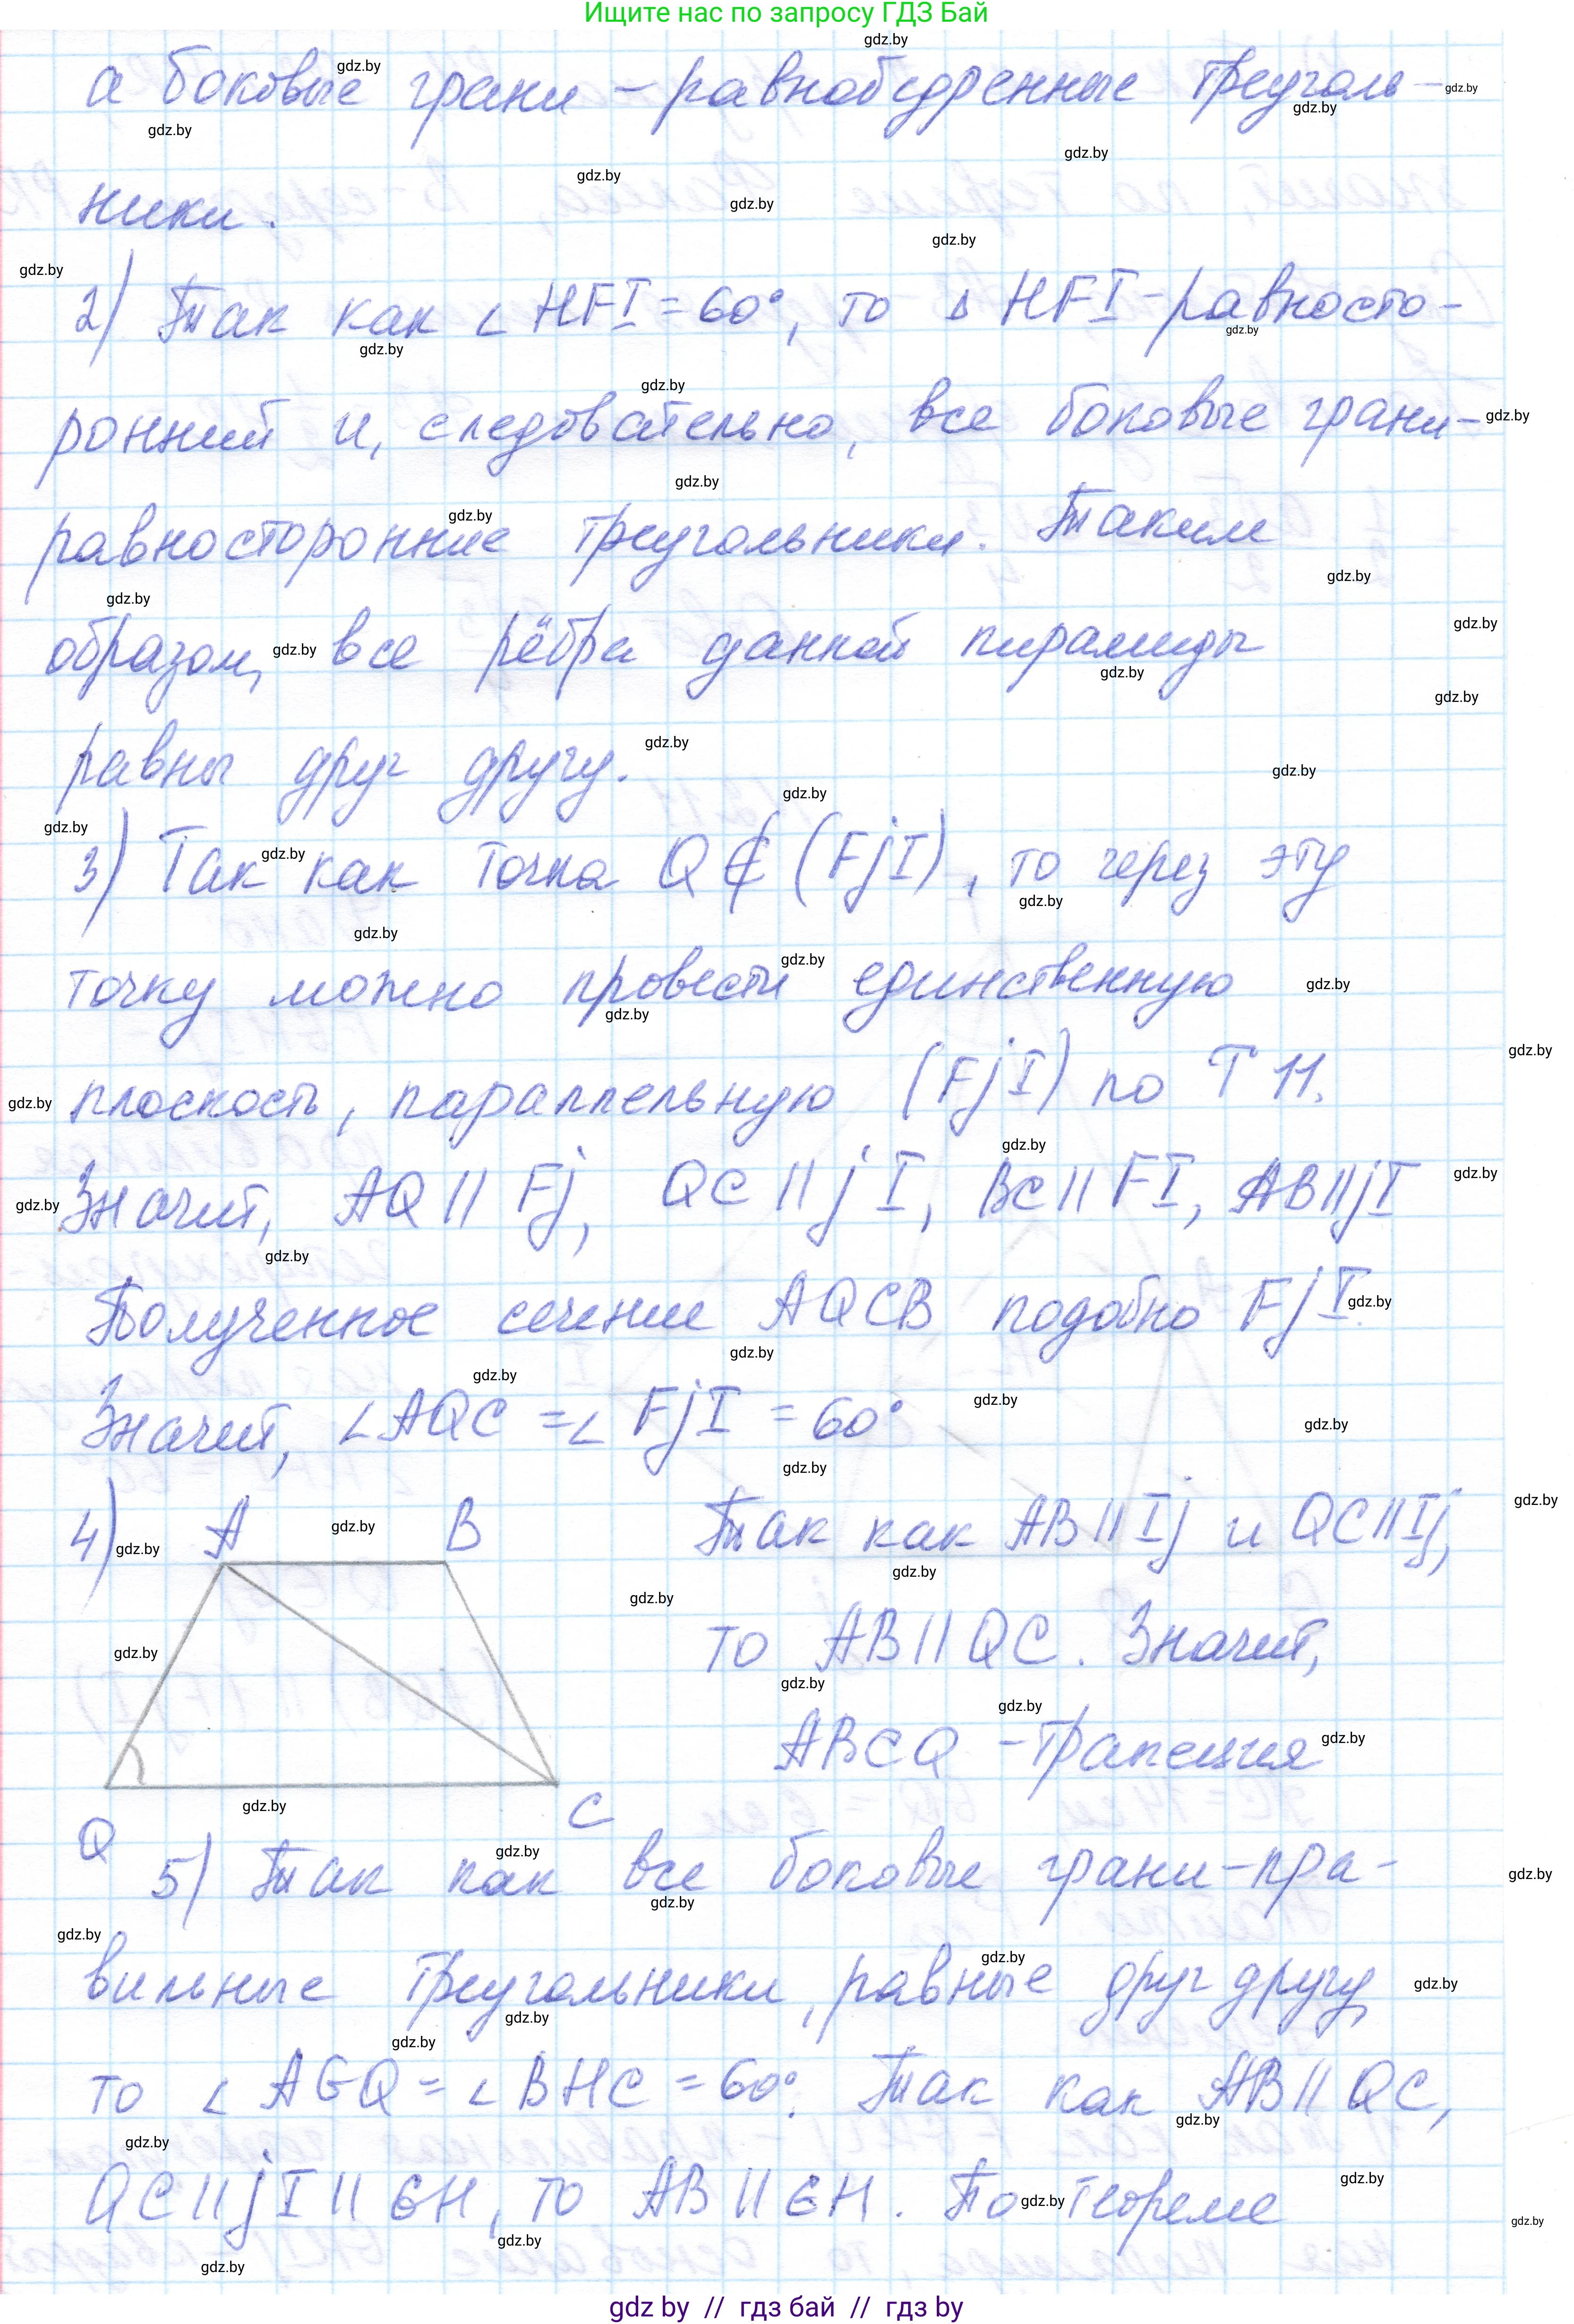 Ищите нас по запросу ГДЗ Бай
а боковые грани – равнобедренные треуголь-
ники.
2) Так как ∠ HFI = 60°, то △ HFI - равносто-
ронний и, следовательно, все боковые грани-
равносторонние треугольники. Таким
образом, все рёбра данной пирамиды
равны друг другу.
3) Так как точка Q ∉ (FjI), то через эту
точку можно провести единственную
плоскость, параллельную (FjI) по Т 11.
Значит, AQ || Fj, QC || jI, BC || FI, AB || jI
Полученное сечение AQCB подобно FjI.
Значит, ∠AQC = ∠ FjI = 60°
4) A B Так как AB || Ij и QC || Ij,
то AB || QC. Значит,
ABCQ – трапеция
Q C
5) Так как все боковые грани – пра-
вильные треугольники, равные друг другу,
то ∠ AGQ = ∠ BHC = 60°. Так как AB || QC,
QC || jI || GH, то AB || GH. По теореме
gdz by // гдз бай // гдз by